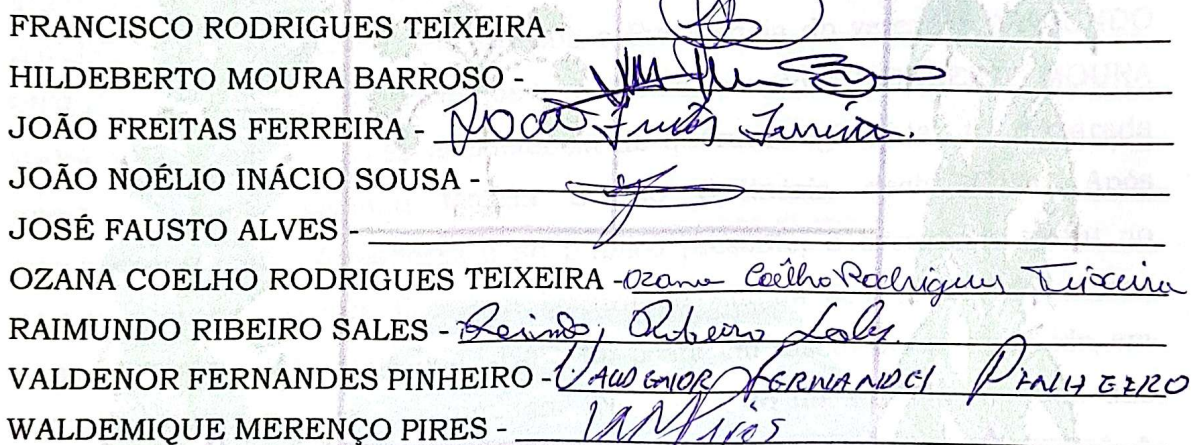 FRANCISCO RODRIGUES TEIXEIRA -
HILDEBERTO MOURA BARROSO -
JOÃO FREITAS FERREIRA - João Freitas Ferreira.
JOÃO NOÉLIO INÁCIO SOUSA -
JOSÉ FAUSTO ALVES -
OZANA COELHO RODRIGUES TEIXEIRA - Ozana Coêlho Rodrigues Teixeira
RAIMUNDO RIBEIRO SALES - Ribeiro Sales.
VALDENOR FERNANDES PINHEIRO - FERNANDES PINHEIRO
WALDEMIQUE MERENÇO PIRES - Pires